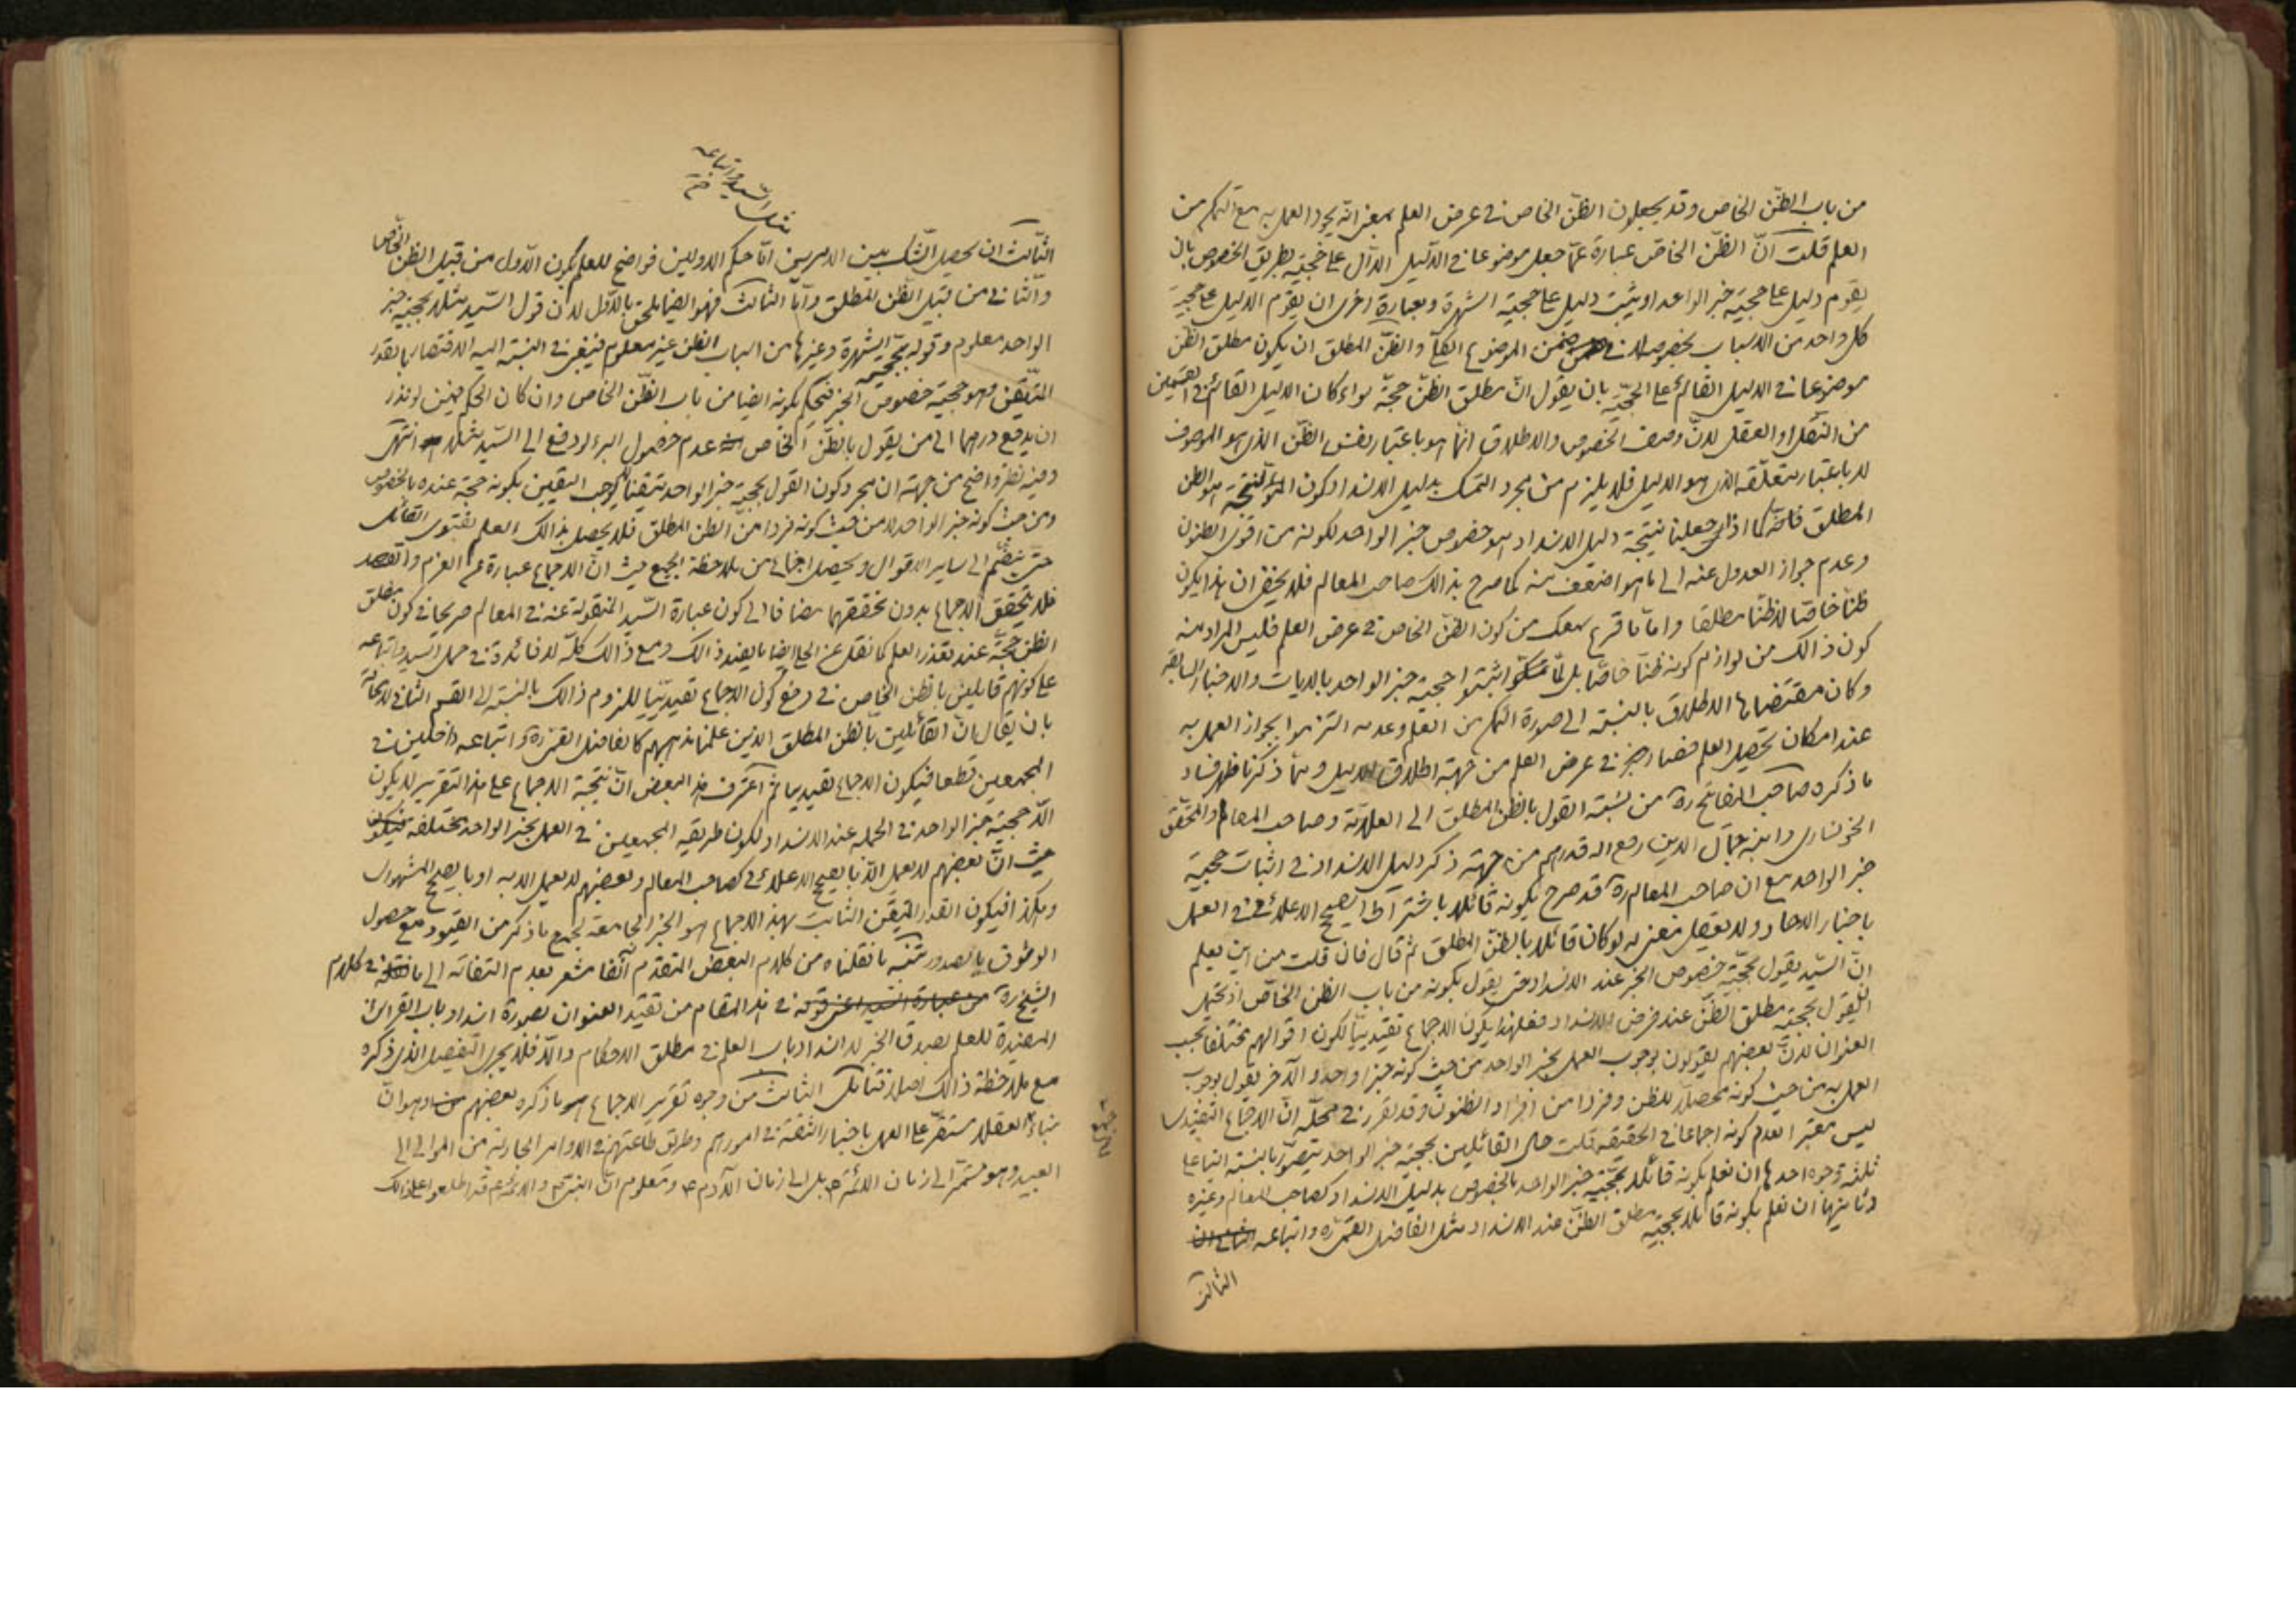 من باب الظنّ الخاص وقد يجعلون الظنّ الخاص في عرض العلم بمعنى انّه يجوز العمل به مع التمكن من
العلم قلت انّ الظنّ الخاصّ عبارة عمّا جعل موضوعا في الدّليل الدّال على حجّيته بطريق الخصوص بان
يقوم دليل على حجيّة خبر الواحد او يثبت دليل على حجية الشهرة وبعبارة اخرى ان يقوم الدليل على حجيّة
كل واحد من الاسباب بخصوصه لا في ضمن الموضوع الكلّي والظنّ المطلق ان يكون مطلق الظن
موضوعا في الدليل القائم على الحجّية بان يقول انّ مطلق الظنّ حجّة سواء كان الدليل القائم في القسمين
من النّقل او العقل لانّ وصف الخصوص والاطلاق انّما هو باعتبار نفس الظنّ الذي هو الموصوف
لا باعتبار متعلّقه الذي هو الدليل فلا يلزم من مجرد التمسك بدليل الانسداد كون النتيجة هو الظن
المطلق فانّه اذا جعلنا نتيجة دليل الانسداد هو خصوص خبر الواحد لكونه من اقوى الظنون
وعدم جواز العدول عنه الى ما هو اضعف منه كما صرح بذلك صاحب المعالم فلا يخفى ان هذا يكون
ظنّا خاصّا لا ظنّا مطلقا وامّا ما قرع سمعك من كون الظنّ الخاص في عرض العلم فليس المراد منه
كون ذالك من لوازم كونه ظنّا خاصّا بل لمّا اثبتوا حجية خبر الواحد بالايات والاخبار السابقة
وكان مقتضاها الاطلاق بالنسبة الى صورة التمكن من العلم وعدمه التزموا بجواز العمل به
عند امكان تحصيل العلم فصار في عرض العلم من جهة اطلاق الدليل وممّا ذكرنا ظهر فساد
ما ذكره صاحب المفاتيح ره من نسبة القول بالظن المطلق الى العلامة وصاحب المعالم والمحقّق
الخونساري وابنه جمال الدين رفع الله قدرهم من جهة ذكر دليل الانسداد في اثبات حجية
خبر الواحد مع ان صاحب المعالم ره قد صرح بكونه قائلا باشتراط الصحيح الاعلائي في العمل
باخبار الاحاد ولا يعقل معنى له لو كان قائلا بالظنّ المطلق ثم قال فان قلت من اين يعلم
انّ السّيد يقول بحجّية خصوص الخبر عند الانسداد حتى يقول بكونه من باب الظن الخاصّ اذ يحتمل
ان يقول بحجية مطلق الظنّ عند فرض الانسداد فعلى هذا يكون الاجماع تقييديّا لكون اقوالهم مختلفا بحسب
العنوان لانّ بعضهم يقولون بوجوب العمل بخبر الواحد من حيث كونه خبرا واحدا والاخر يقول بوجوب
العمل به من حيث كونه محصّلا للظن وفردا من افراد الظنون وقد تقرر في محلّه انّ الاجماع التقييدي
ليس معتبرا لعدم كونه اجماعا في الحقيقة قلت حال القائلين بحجية خبر الواحد يتصوّر بالنسبة الينا على
ثلثة وجوه احدها ان نعلم بكونه قائلا بحجّية خبر الواحد بالخصوص بدليل الانسداد كصاحب المعالم وغيره
وثانيها ان نعلم بكونه قائلا بحجّية مطلق الظنّ عند الانسداد مثل الفاضل القمّي ره واتباعه
الثالث
مثل السّيد واتباعه
الثّالث ان يحصل الشّك بين الامرين امّا حكم الاولين فواضح للعلم بكون الاوّل من قبيل الظن الخاص
والثّاني من قبيل الظّن المطلق وامّا الثالث فهو ايضا يلحق بالاوّل لان قول السّيد مثلا بحجيّة خبر
الواحد معلوم وقوله بحجّية الشهرة وغيرها من اسباب الظن غير معلوم فينبغي في النسبة اليه الاقتصار بالقدر
المتيقّن وهو حجية خصوص الخبر فنحكم بكونه ايضا من باب الظّن الخاص وان كان الحكم فيمن لو نذر
ان يدفع درهما الى من يقول بالظنّ الخاص عدم حصول البرء لو دفع الى السّيد مثلا انتهى
وفيه نظر واضح من جهة ان مجرد كون القول بحجية خبر الواحد متيقّنا لا يوجب اليقين بكونه حجة عنده بالخصوص
ومن حيث كونه خبر الواحد لا من حيث كونه فردا من الظن المطلق فلا يحصل بذالك العلم بفتوى القائل
حتى ينضم الى ساير الاقوال ويحصل اجماع من ملاحظة الجميع حيث انّ الاجماع عبارة عن العزم والقصد
فلا يتحقق الاجماع بدون تحققهما مضافا الى كون عبارة السّيد المنقولة عنه في المعالم صريحا في كون مطلق
الظن حجّة عند تعذر العلم كما نقل عن الحلي ايضا ما يفيد ذالك ومع ذالك كلّه لا فائدة في حمل السيد واتباعه
على كونهم قايلين بالظن الخاص في رفع كون الاجماع تقييديّا للزوم ذالك بالنسبة الى القسم الثاني لا محالة
بان يقال انّ القائلين بالظن المطلق الذين علمنا مذهبهم كالفاضل القمي ره واتباعه داخلين في
المجمعين قطعا فيكون الاجماع تقييديا ثم اعترف هذا البعض انّ نتيجة الاجماع على هذا التقرير لا يكون
الّا حجية خبر الواحد في الجملة عند الانسداد لكون طريقة المجمعين في العمل بخبر الواحد مختلفه
حيث انّ بعضهم لا يعمل الّا بالصحيح الاعلائي كصاحب المعالم وبعضهم لا يعمل الا به او بالصحيح المشهوري
وهكذا فيكون القدر المتيقّن الثابت بهذا الاجماع هو الخبر الجامع لجميع ما ذكر من القيود مع حصول
الوثوق بالصدور تنبيه ما نقلناه من كلام البعض المتقدم آنفا مشعر بعدم التفاته الى ما في كلام
الشيخ ره من عبارة السيد اعني قوله في هذا المقام من تقييد العنوان بصورة انسداد باب القرائن
المفيدة للعلم بصدق الخبر لا انسداد باب العلم في مطلق الاحكام والّا فلا يجري التفصيل الذي ذكره
مع ملاحظة ذالك اصلا فتامّل الثالث من وجوه تقرير الاجماع هو ما ذكره بعضهم وهو انّ
بناء العقلاء مستقرّ على العمل باخبار الثقة في امورهم وطريق طاعتهم في الاوامر الجارية من الموالي الى
العبيد وهو مستمرّ الى زمان الائمّة بل الى زمان الآدم ومعلوم انّ النبيّ والائمّة قد اطلعوا على ذالك